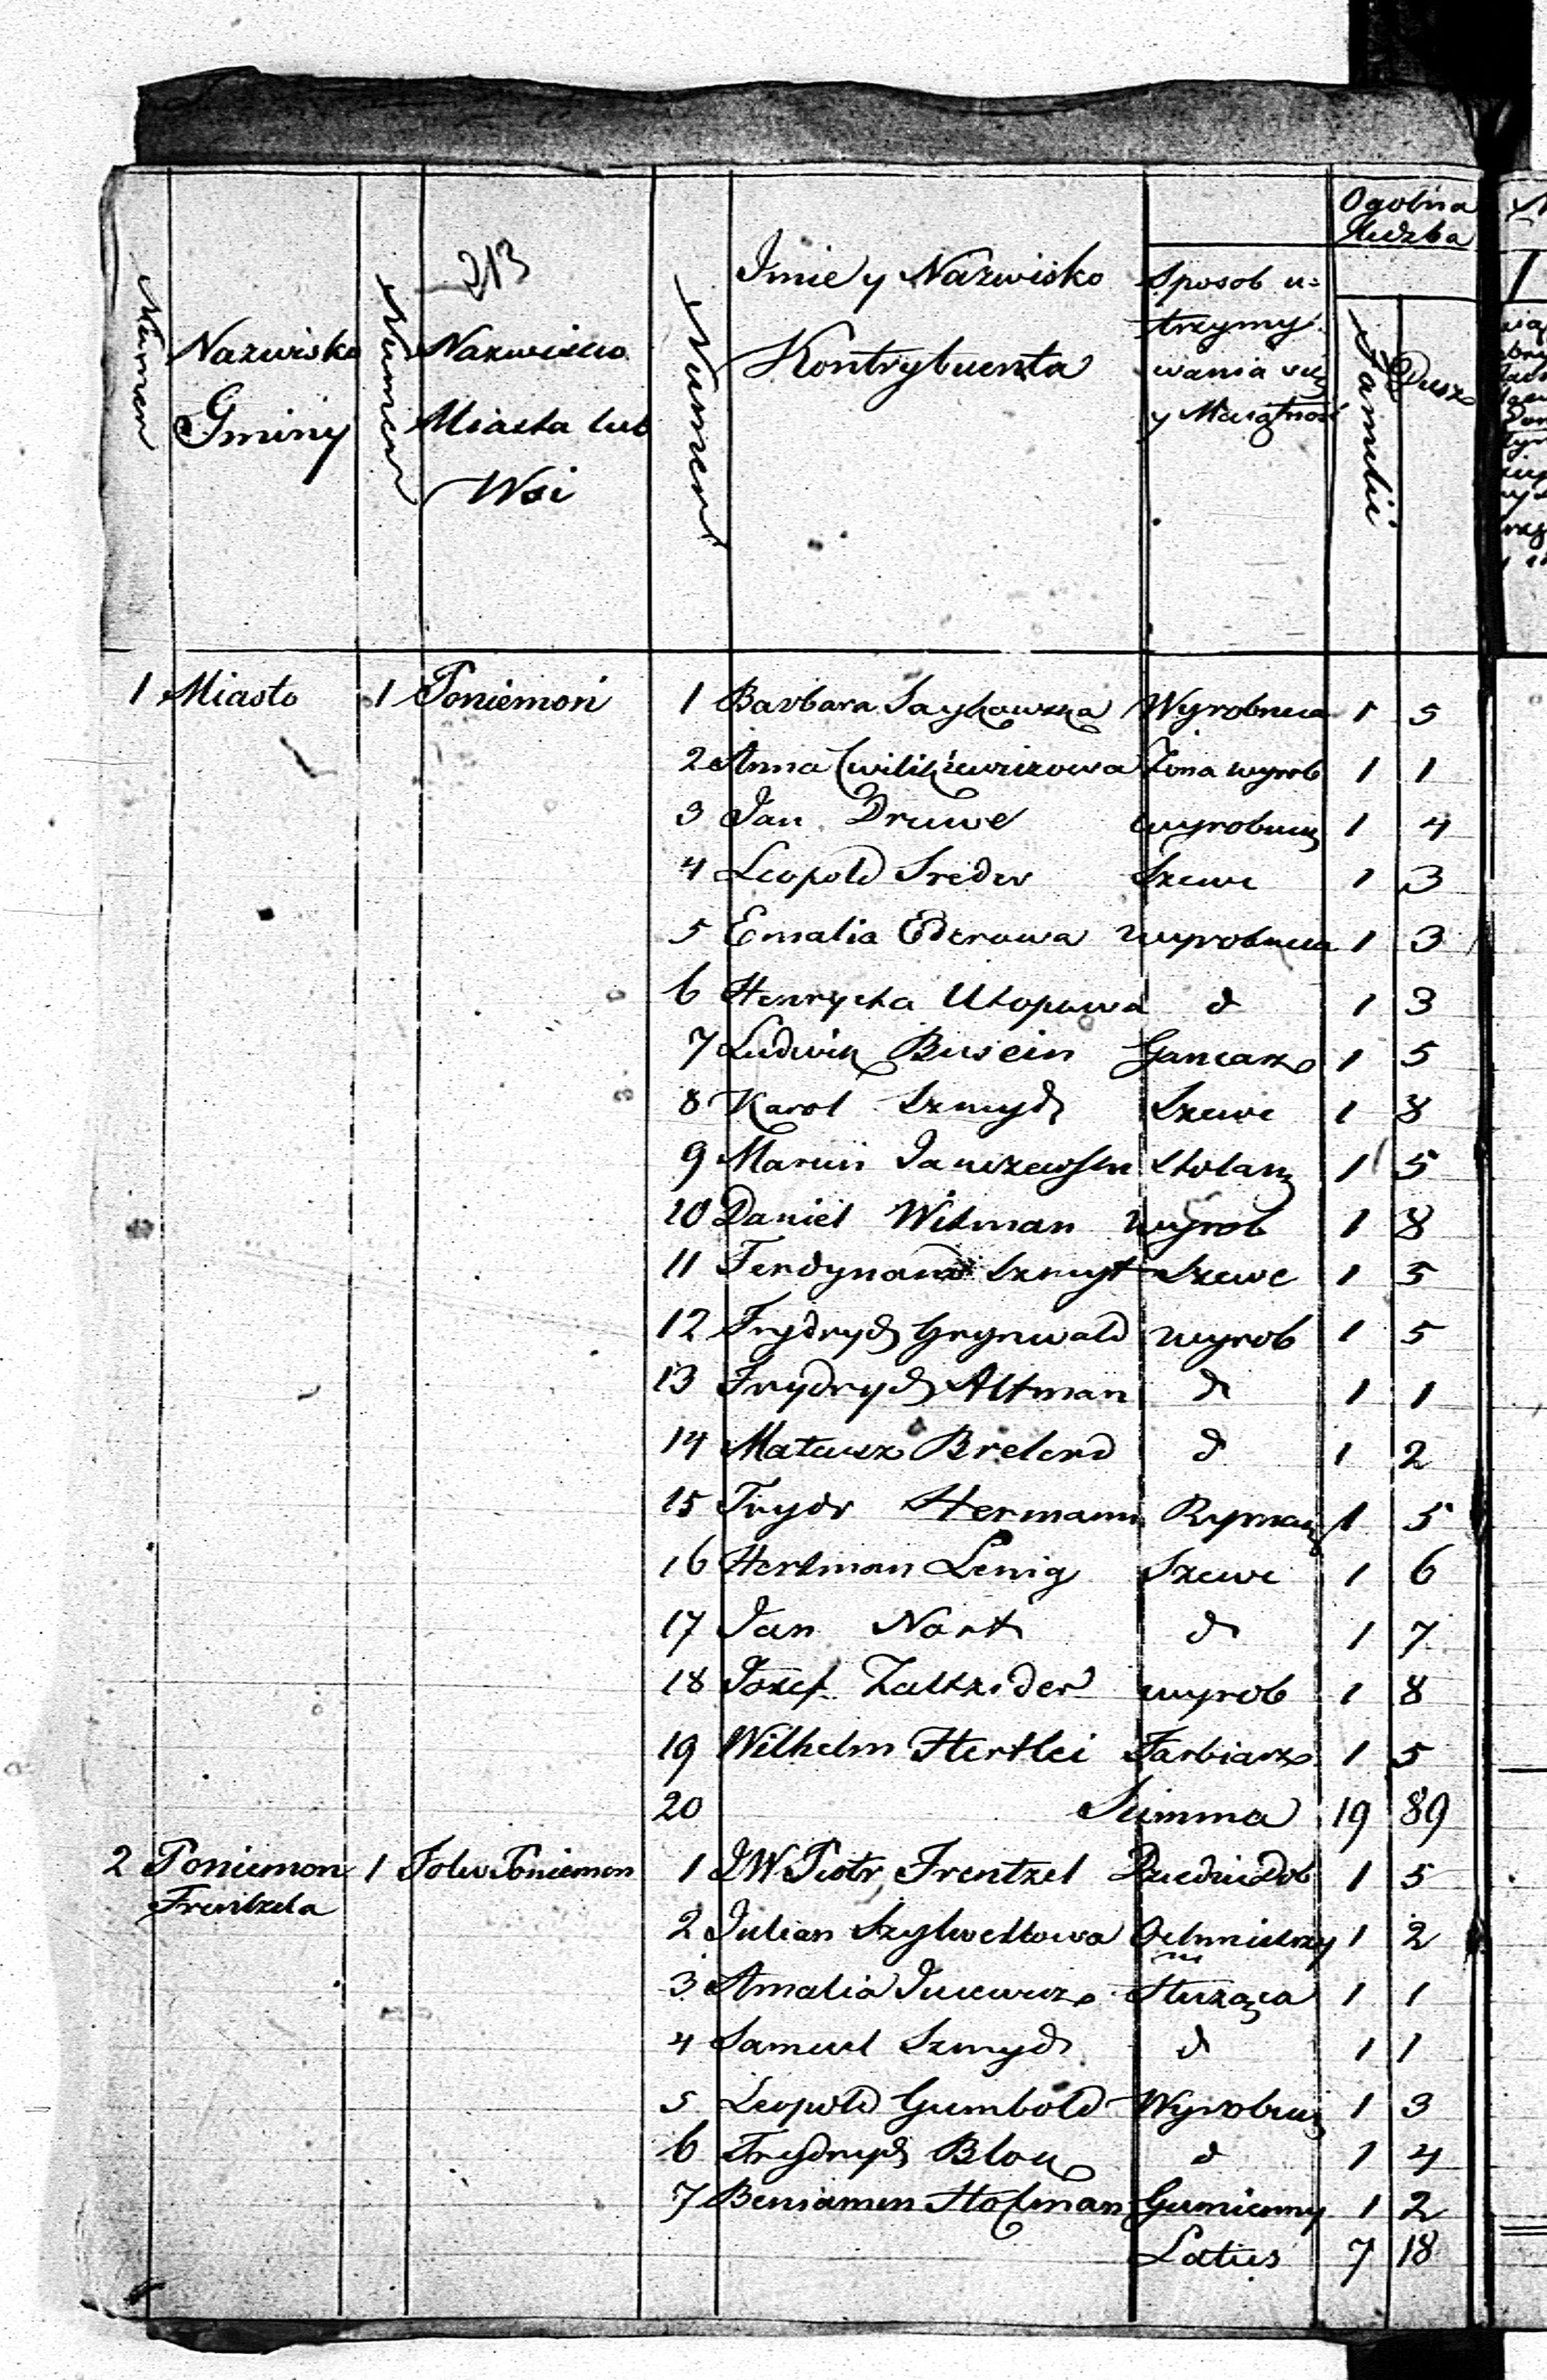 213
Numer
Nazwisko Gminy
Numer
Nazwisko Miasta lub Wsi
Numer
Imie y Nazwisko Kontrybuenta
Sposob u= trzymy wania się y Maiątność
Ogolna Liczba
Familii
Dusz
1 Miasto 1 Poniemoń 1 Barbara Wyrobnica 1 5
2 Anna Żona wyrob 1 1
3 Jan Druwe wyrobnik 1 4
4 Leopold Sreder Szewc 1 3
5 Emalia Ederowa wyrobnica 1 3
6 Henryeta d 1 3
7 Ludwik Busein Garncarz 1 5
8 Karol Szmydt Szewc 1 8
9 Marcin Janczewski Stolarz 1 5
10 Daniel Witman wyrob 1 8
11 Ferdynand Szmyt Szewc 1 5
12 Frydrych Grynwald wyrob 1 5
13 Frydrych Altman d 1 1
14 Mateusz Brelerd d 1 2
15 Frydr Hermann Rymarz 1 5
16 Hertman Lenig Szewc 1 6
17 Jan Nort d 1 7
18 Jozef wyrob 1 8
19 Wilhelm Hertlei Farbiarz 1 5
20 Summa 19 89
2 Poniemon Frentzela 1 Folw Poniemon 1 JW Piotr Frentzel Dziedzic Dob 1 5
2 Julian Ochmistrzy ni 1 2
3 Amalia Służąca 1 1
4 Samuel Szmydt d 1 1
5 Leopold Gumbold Wyrobnik 1 3
6 Frydrych Blok d 1 4
7 Beniamin Hofman Gumienny 1 2
Latus 7 18